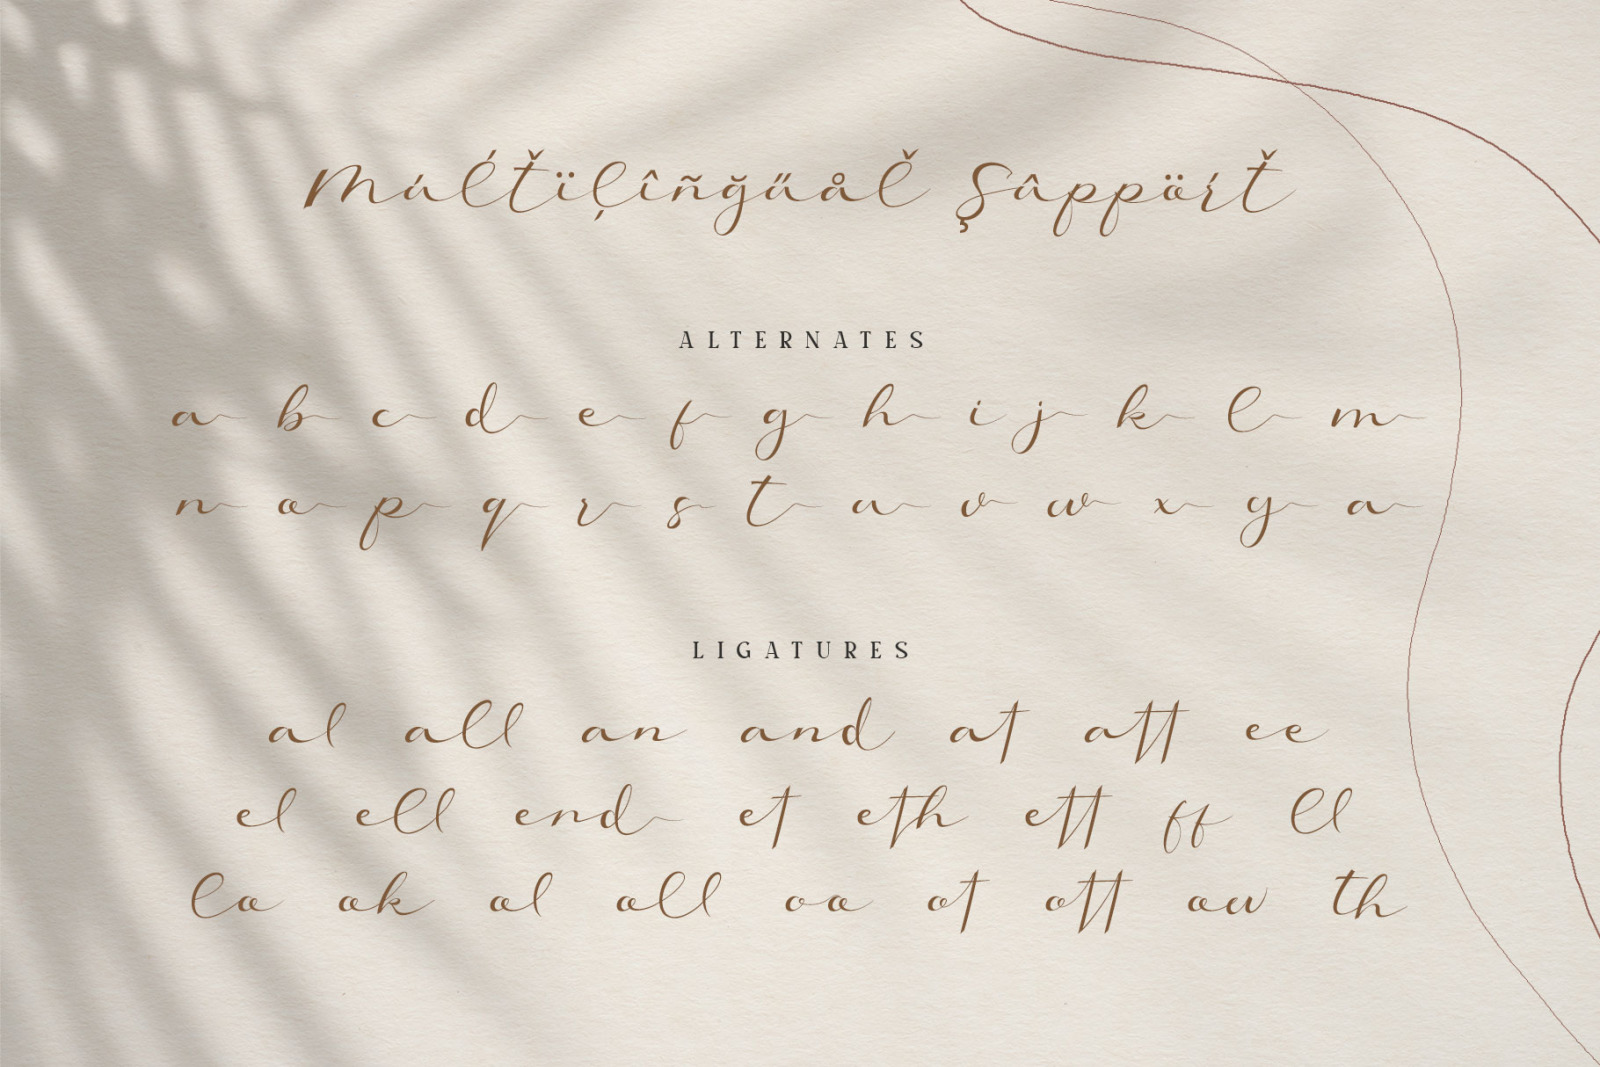 Múĺťïļîñğűåľ Şûppöŕť
ALTERNATES
a b c d e f g h i j k l m
n o p q r s t u v w x y a
LIGATURES
al all an and at att ee
el ell end et eth ett ff ll
lo ok ol oll oo ot ott ow th